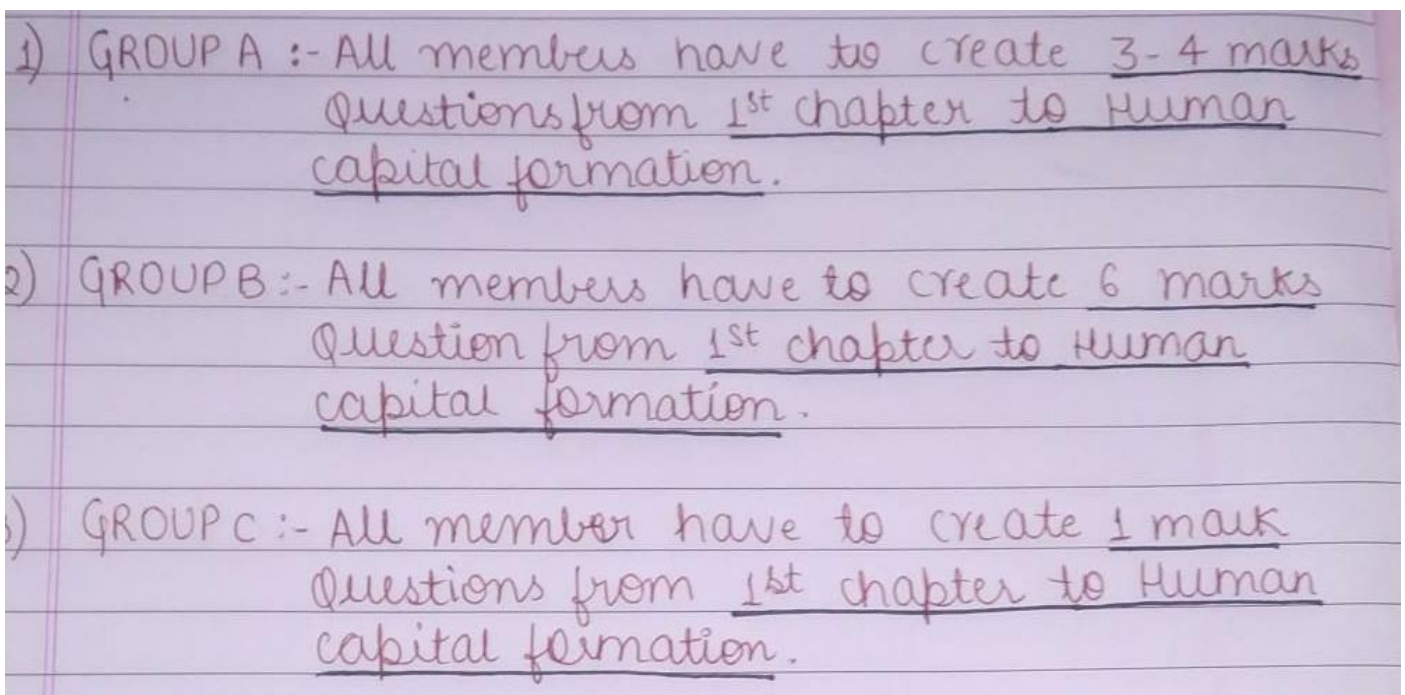 1) GROUP A :- All members have to create 3-4 marks
Questions from 1st chapter to Human
capital formation.
2) GROUP B :- All members have to create 6 marks
Question from 1st chapter to Human
capital formation.
) GROUP C :- All member have to create 1 mark
Questions from 1st chapter to Human
capital formation.